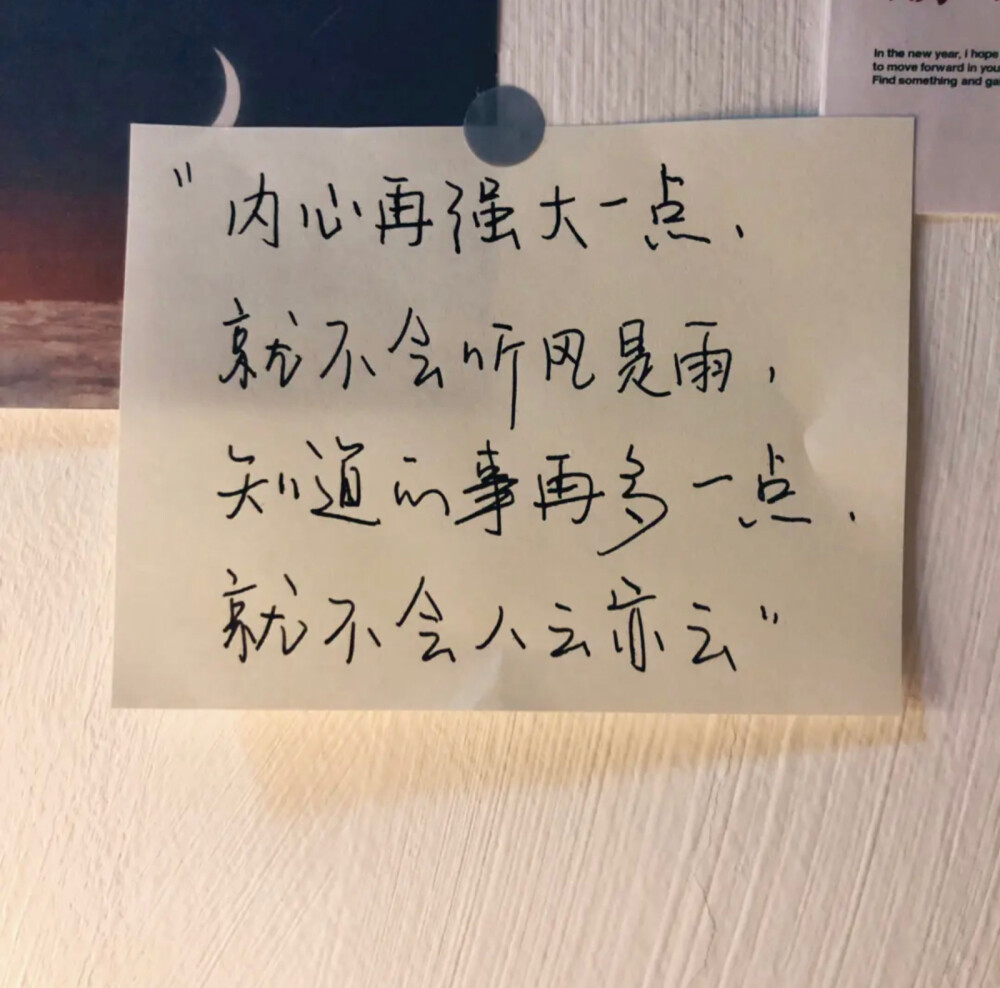 In the new year, i hope
to move forward in you
Find something and ga
"内心再强大一点、
就不会听风是雨,
知道的事再多一点.
就不会人云亦云"